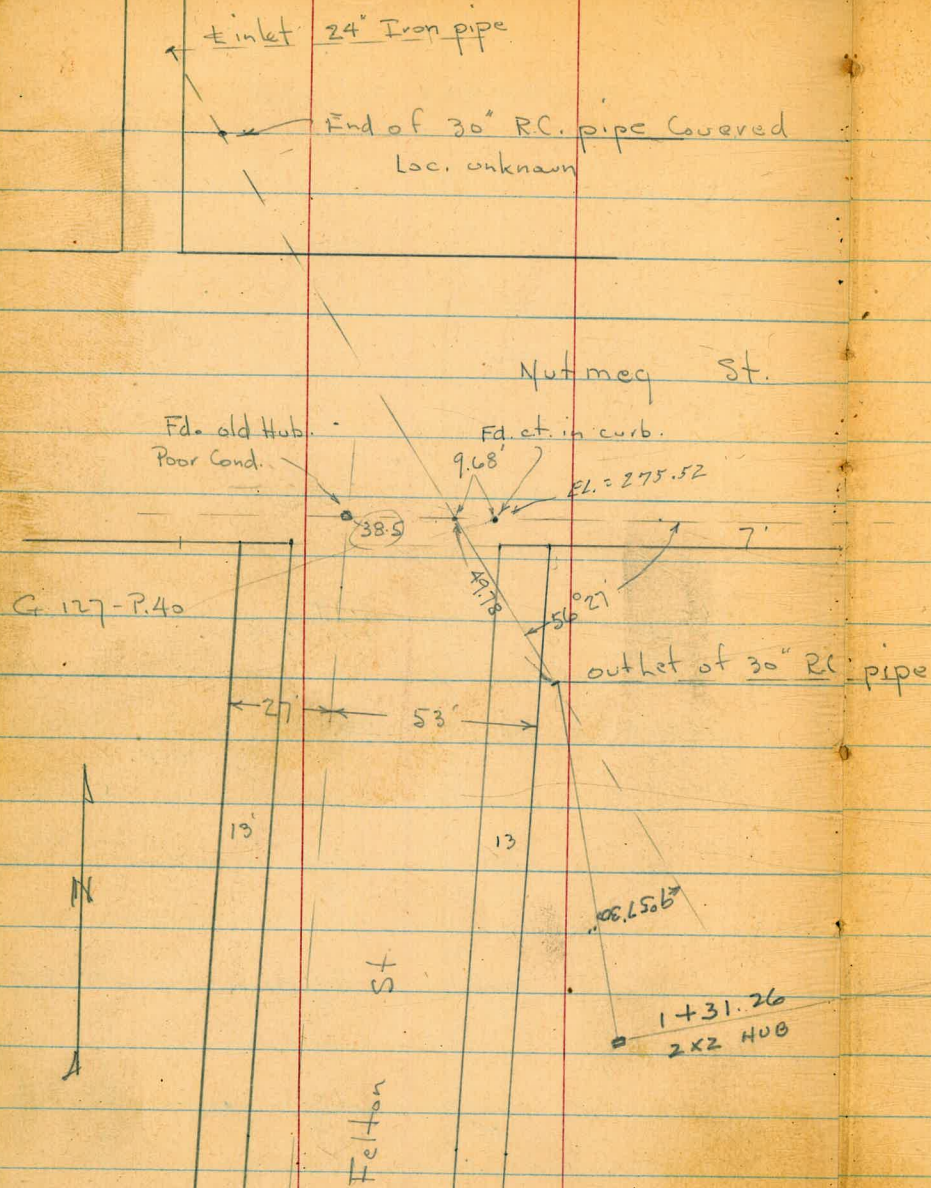 ℄ inlet 24" Iron pipe
End of 30" R.C. pipe Covered
Loc. unknown
Nutmeg St.
Fd. old Hub.
Poor Cond.
Fd. ct. in curb.
9.68'
EL. = 275.52
38.5
7'
49.78
56°27'
G 127-P.40
outlet of 30" R.C. pipe
27'
53'
13'
13
N
9°57'30"
St
1+31.26
2x2 HUB
Felton